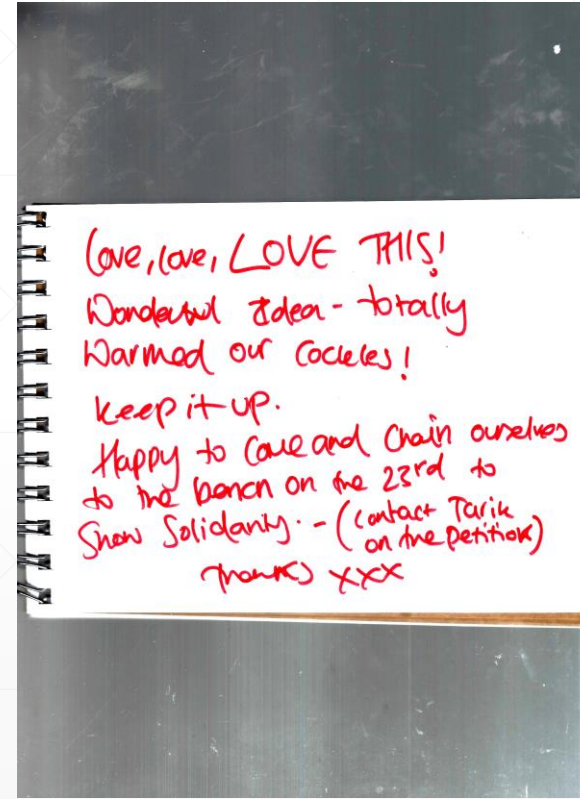 Love, love, LOVE THIS!
Wonderful Idea - totally
Warmed our Cockles!
Keep it up.
Happy to Come and Chain ourselves
to the bench on the 23rd to
Show Solidarity. - (contact Tarik
on the petition)
Thanks xxx